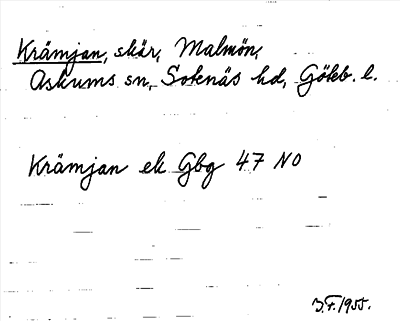 Krämjan, skär, Malmön,
Askums sn, Sotenäs hd, Göteb. l.
Krämjan ek Gbg 47 NO
J.F. 1955.